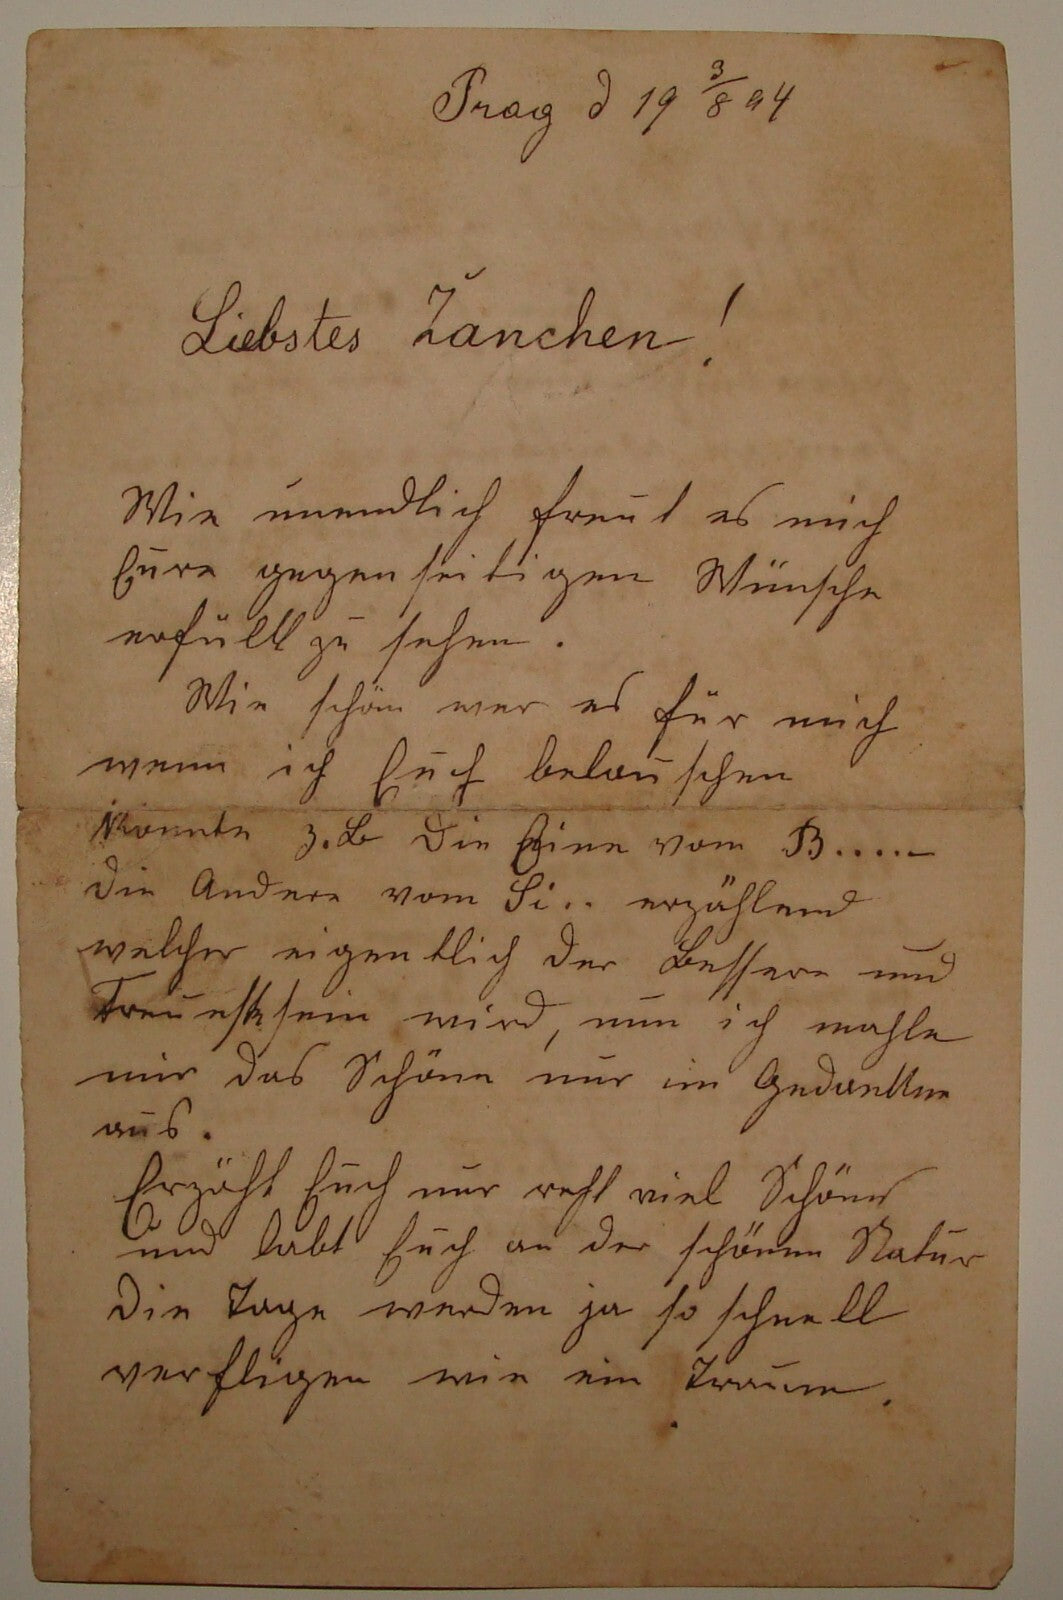 Prag d 19 3/8 94
Liebstes Žanchen!
Wie unendlich freut es mich
Eure gegenseitigen Wünsche
erfüllt zu sehen.
Wie schön wer es für mich
wenn ich Euch belauschen
könnte z.B die Eine vom B.....
die Andere vom Si.. erzählend
welcher eigentlich der Bessere und
Treueste sein wird, nun ich mahle
mir das Schöne nur im Gedanken
aus.
Erzählt Euch nur recht viel Schönes
und labt Euch an der schönen Natur
die Tage werden ja so schnell
verfligen wie ein Traum.